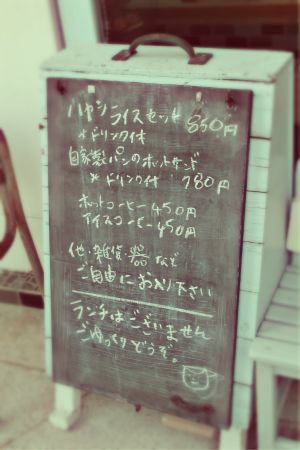 ハヤシライスセット 850円
*ドリンク付
自家製パンのホットサンド
*ドリンク付 780円
ホットコーヒー 450円
アイスコーヒー 450円
他・雑貨・器 など
ご自由にお入り下さい
ランチはございません
ごゆっくりどうぞ。